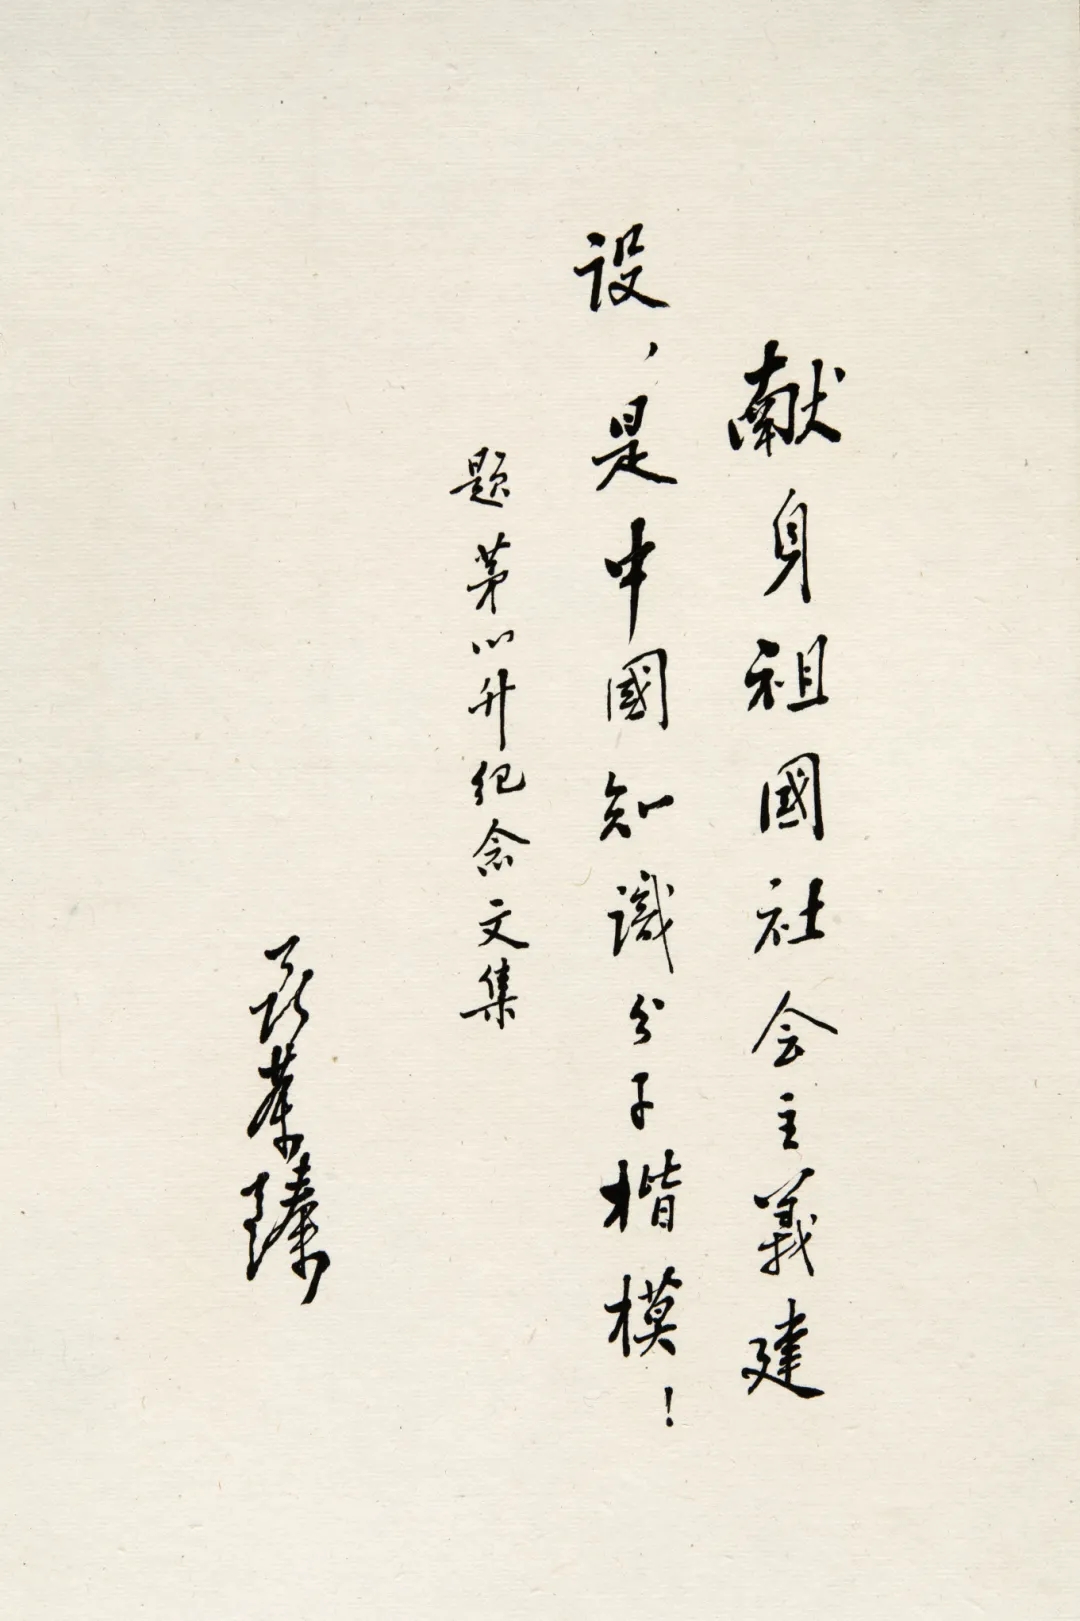 献身祖國社会主義建
设，是中國知識分子楷模！
题茅以升纪念文集
聂荣臻